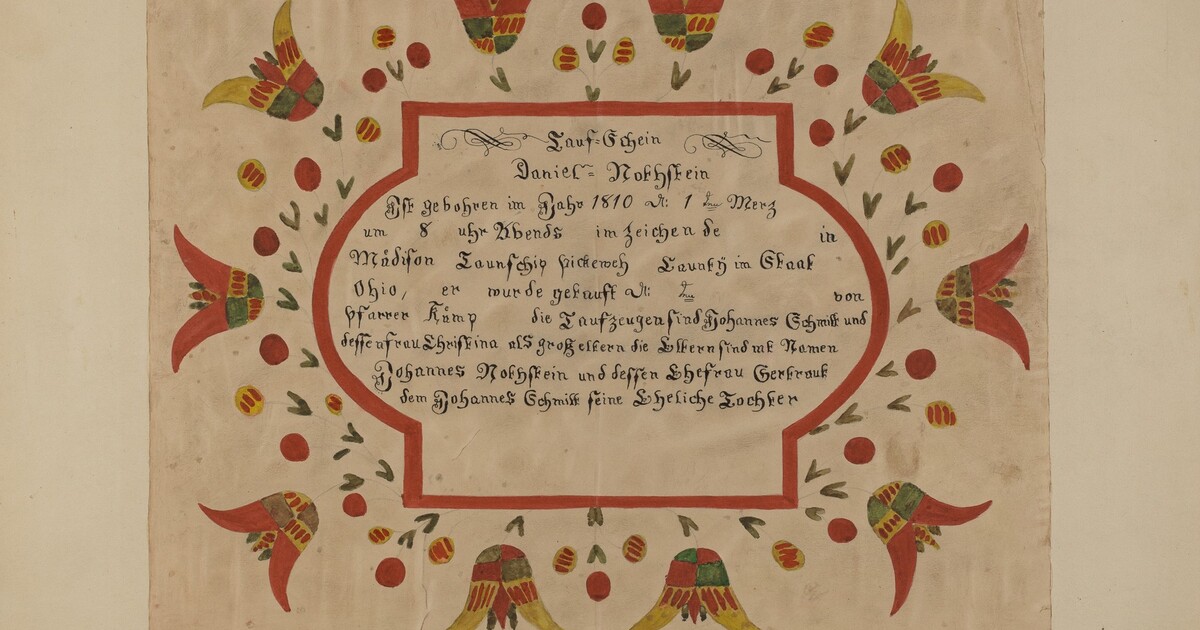 Tauf=Schein
Daniel= Nothstein
Ist gebohren im Jahr 1810 d: 1 tnu Merz
um 8 uhr Abends im zeichen de in
Mådison Taunschip pickeweh Caunty im Staat
Ohio, er wurde getauft d: tnu von
pfarrer Kåmp die Taufzeugen sind Johannes Schmitt und
dessen frau Christina als groß eltern die Eltern sind mit Namen
Johannes Nothstein und dessen Ehefrau Gertraut
dem Johannes Schmitt seine Eheliche Tochter